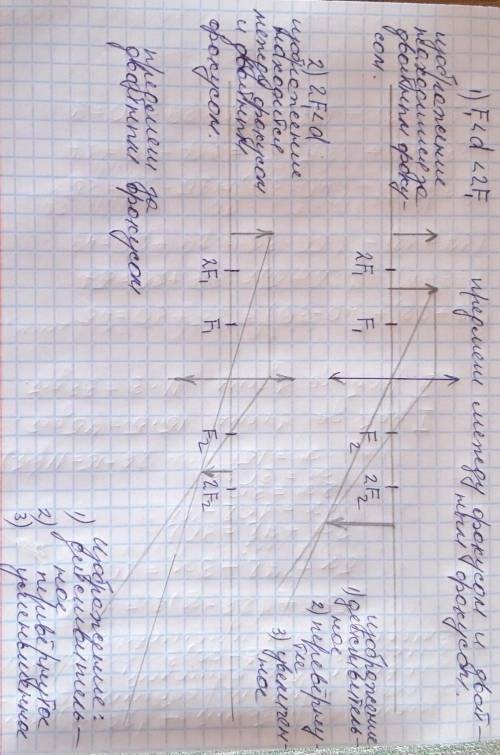 1) F₁<d<2F₁
предмет между фокусом и двой-
ным фокусом.
изображение
находится за
двойным фоку-
сом.
2F₁
F₁
F₂
2F₂
изображение
1) действитель
ное
2) переверну
тое
3) увеличен
ное
2) 2F₁<d
изображение
находится
между фокусом
и двойным
фокусом.
2F₁
F₁
F₂
2F₂
предмет за
двойным фокусом
изображение:
1) действитель-
ное
2) перевёрнутое
3) уменьшенное